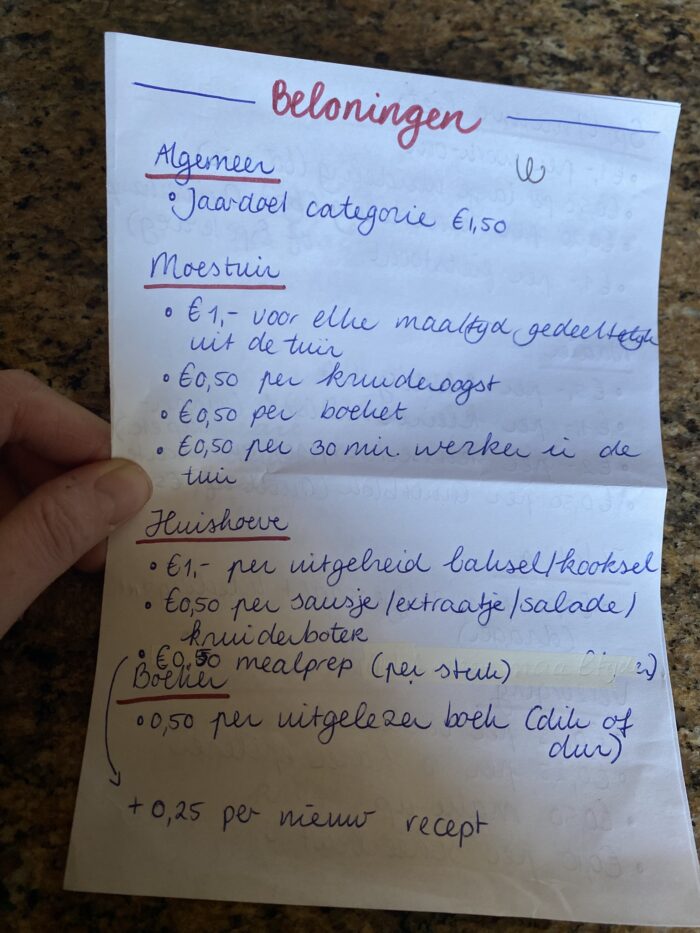 Beloningen
Algemeen
• Jaardoel categorie €1,50
Moestuin
• €1,- voor elke maaltijd gedeeltelijk
uit de tuin
• €0,50 per kruidenoogst
• €0,50 per boeket
• €0,50 per 30 min. werken in de
tuin
Huishoeve
• €1,- per uitgebreid baksel/kooksel
• €0,50 per sausje/extraatje/salade/
kruidenboter
• €0,50 mealprep (per stuk)
Boeken
• 0,50 per uitgelezen boek (dik of
dun)
+ 0,25 per nieuw recept